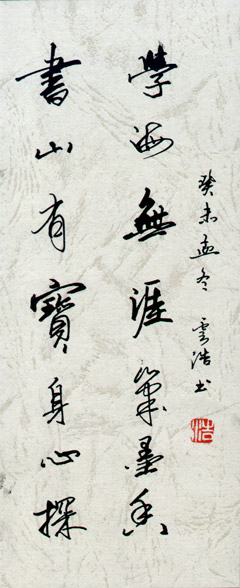 書山有寶身心探
學海無涯筆墨香
癸未孟冬 雲浩書
浩